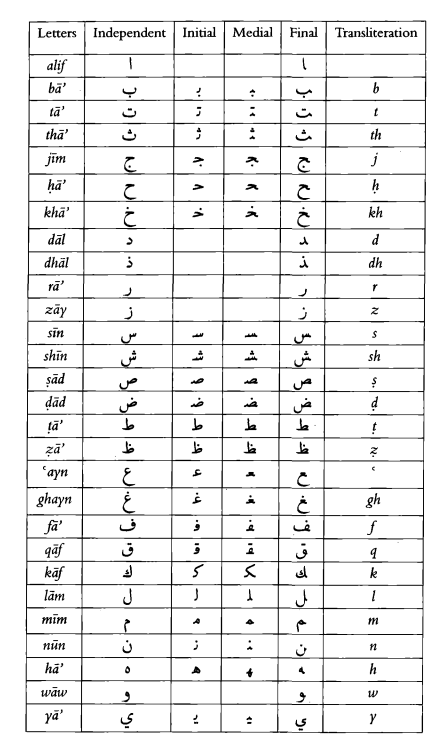 Letters Independent Initial Medial Final Transliteration
alif ا ـا
bā’ ب بـ ـبـ ـب b
tā’ ت تـ ـتـ ـت t
thā’ ث ثـ ـثـ ـث th
jīm ج جـ ـجـ ـج j
ḥā’ ح حـ ـحـ ـح ḥ
khā’ خ خـ ـخـ ـخ kh
dāl د ـد d
dhāl ذ ـذ dh
rā’ ر ـر r
zāy ز ـز z
sīn س سـ ـسـ ـس s
shīn ش شـ ـشـ ـش sh
ṣād ص صـ ـصـ ـص ṣ
ḍād ض ضـ ـضـ ـض ḍ
ṭā’ ط طـ ـطـ ـط ṭ
ẓā’ ظ ظـ ـظـ ـظ ẓ
ʿayn ع عـ ـعـ ـع ʿ
ghayn غ غـ ـغـ ـغ gh
fā’ ف فـ ـفـ ـف f
qāf ق قـ ـقـ ـق q
kāf ك كـ ـكـ ـك k
lām ل لـ ـلـ ـل l
mīm م مـ ـمـ ـم m
nūn ن نـ ـنـ ـن n
hā’ ه هـ ـهـ ـه h
wāw و ـو w
yā’ ي يـ ـيـ ـي y